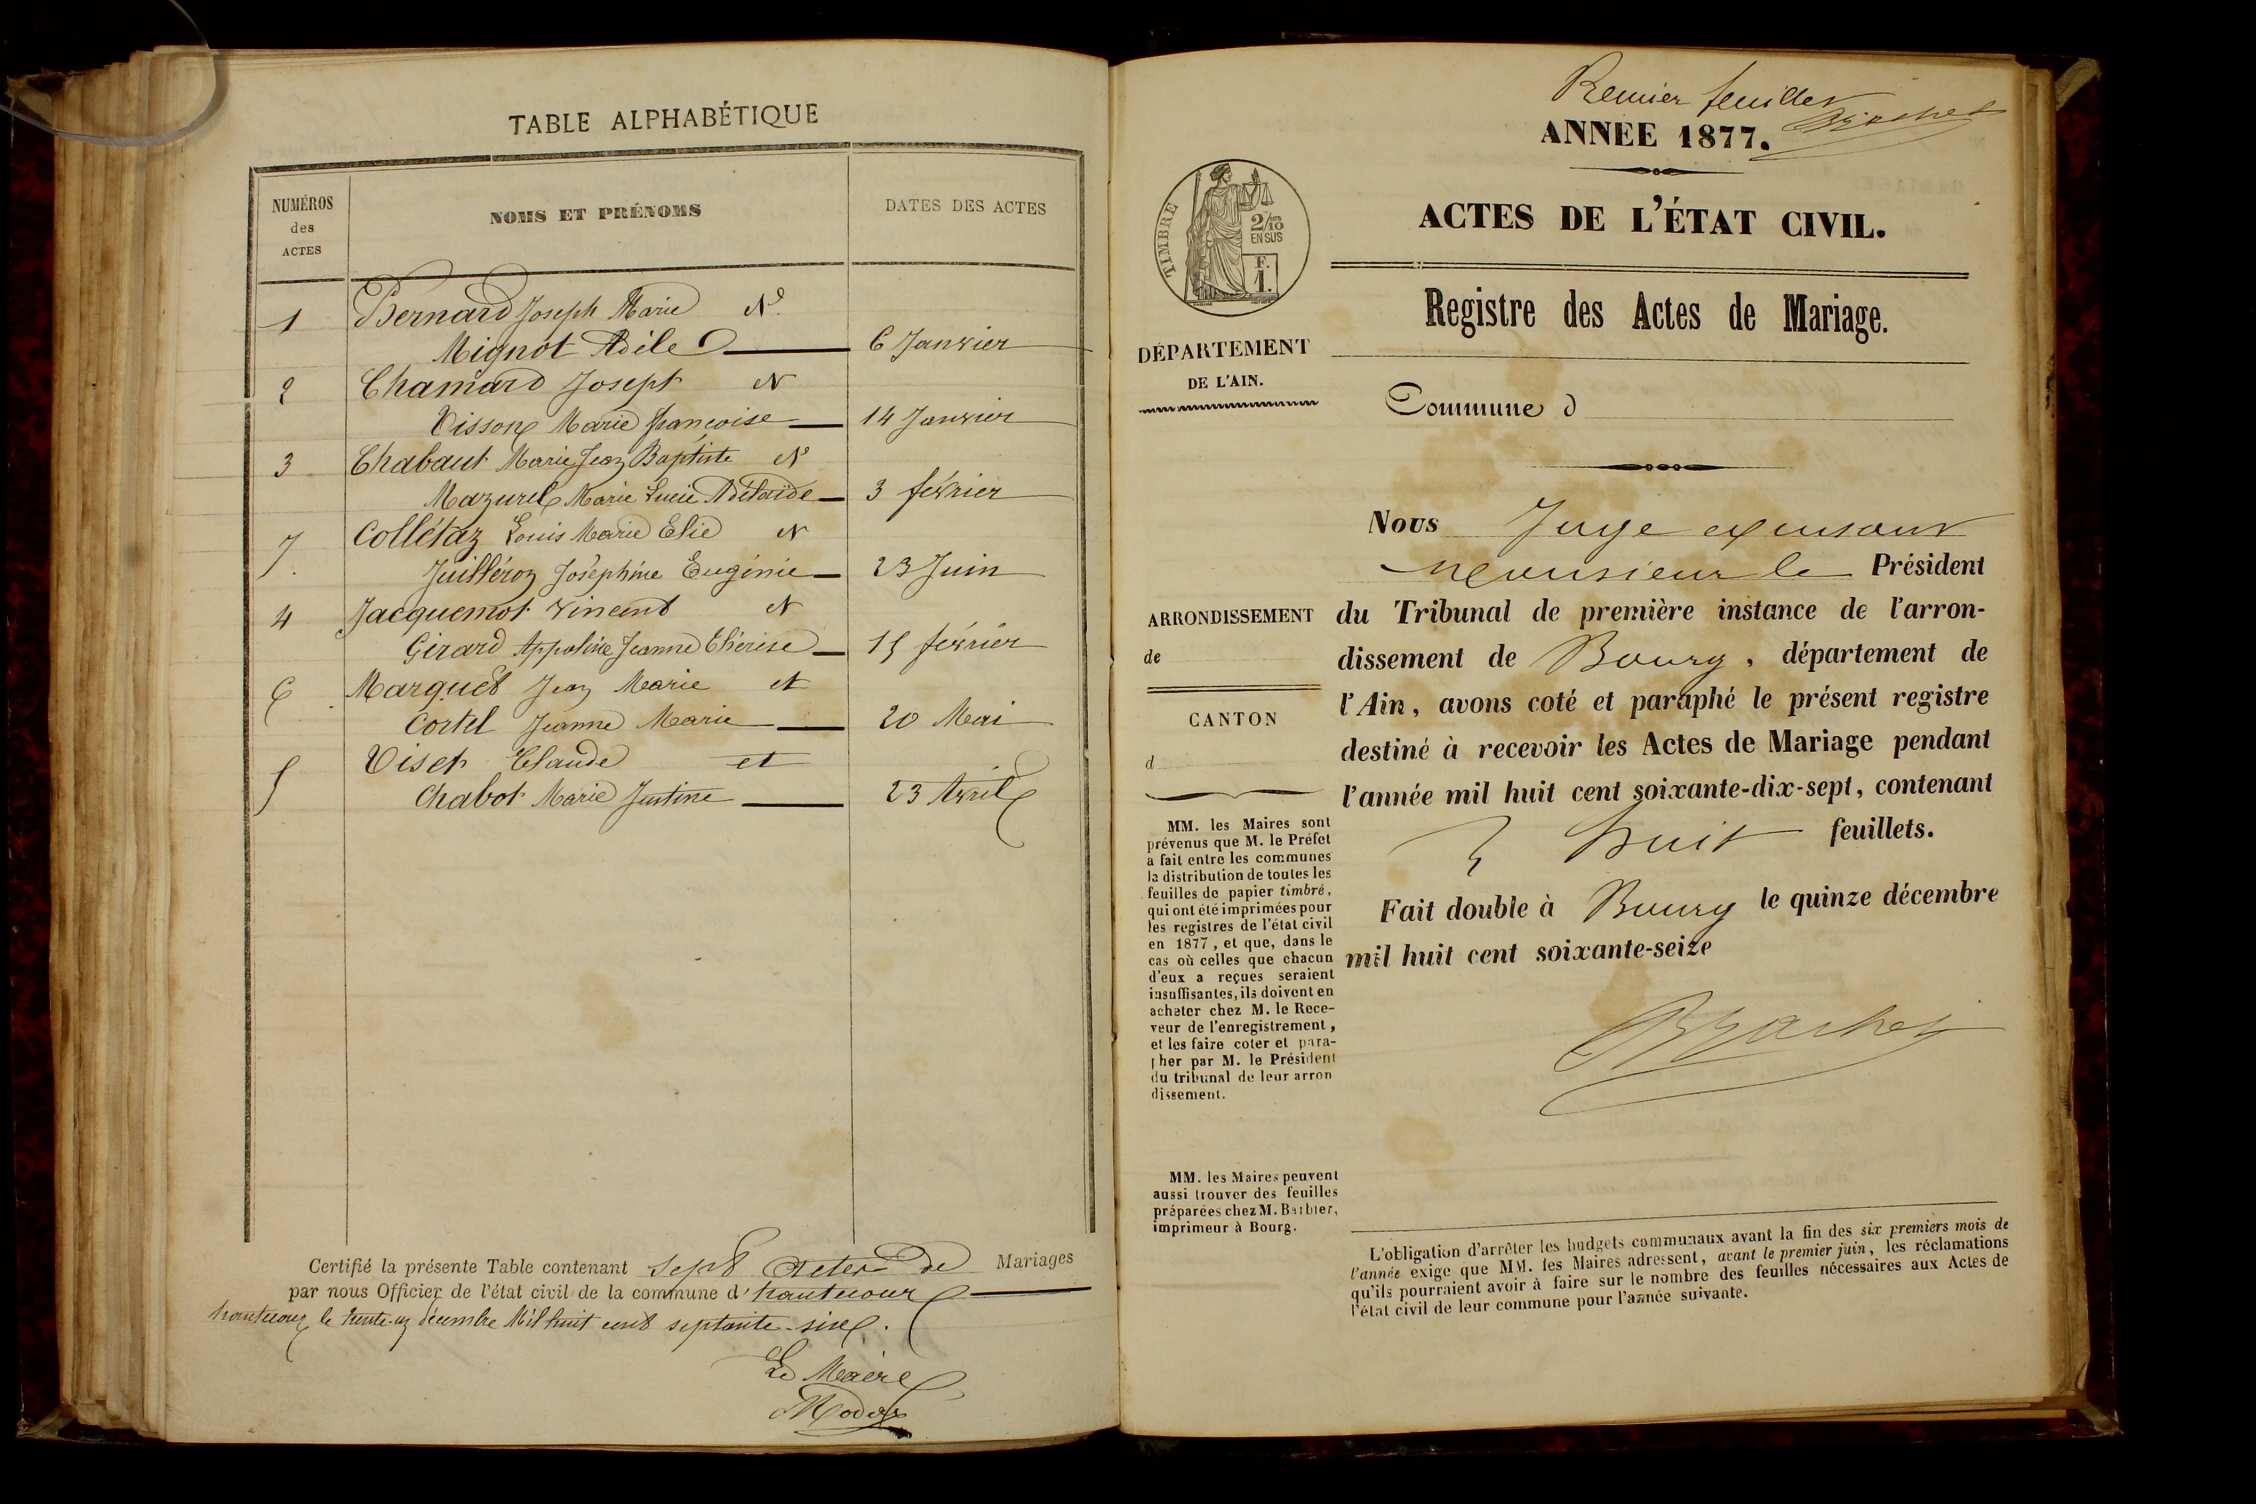 TABLE ALPHABÉTIQUE
NUMÉROS
des
ACTES
NOMS ET PRÉNOMS
DATES DES ACTES
1 Bernard Joseph Marie et
Mignot Adèle 6 Janvier
2 Chamard Joseph et
Visson Marie françoise 14 Janvier
3 Chabaut Marie Jean Baptiste et
Mazurel Marie Lucie Adélaïde 3 février
7 Collétaz Louis Marie Elie et
Juilléron Joséphine Eugénie 23 Juin
4 Jacquemot Vincent et
Girard Appoline Jeanne Thérèse 15 février
6 Marquet Jean Marie et
Cortel Jeanne Marie 20 Mai
5 Viset Claude et
Chabot Marie Justine 23 Avril
Certifié la présente Table contenant sept actes de Mariages
par nous Officier de l'état civil de la commune d'hautecour
hautecour le trente-un décembre Mil huit cent septante-six.
Le Maire
Premier feuillet
ANNÉE 1877.
ACTES DE L'ÉTAT CIVIL.
TIMBRE
2/10
EN SUS
F.
1.
Registre des Actes de Mariage.
DÉPARTEMENT
DE L'AIN.
Commune d
Nous Juge exensant
Monsieur le Président
ARRONDISSEMENT
de
du Tribunal de première instance de l'arron-
dissement de Bourg, département de
l'Ain, avons coté et paraphé le présent registre
destiné à recevoir les Actes de Mariage pendant
l'année mil huit cent soixante-dix-sept, contenant
huit feuillets.
Fait double à Bourg le quinze décembre
mil huit cent soixante-seize
CANTON
d
MM. les Maires sont
prévenus que M. le Préfet
a fait entre les communes
la distribution de toutes les
feuilles de papier timbré,
qui ont été imprimées pour
les registres de l'état civil
en 1877, et que, dans le
cas où celles que chacun
d'eux a reçues seraient
insuffisantes, ils doivent en
acheter chez M. le Rece-
veur de l'enregistrement,
et les faire coter et para-
pher par M. le Président
du tribunal de leur arron
dissement.
MM. les Maires peuvent
aussi trouver des feuilles
préparées chez M. Barbier,
imprimeur à Bourg.
L'obligation d'arrêter les budgets communaux avant la fin des six premiers mois de
l'année exige que MM. les Maires adressent, avant le premier juin, les réclamations
qu'ils pourraient avoir à faire sur le nombre des feuilles nécessaires aux Actes de
l'état civil de leur commune pour l'année suivante.